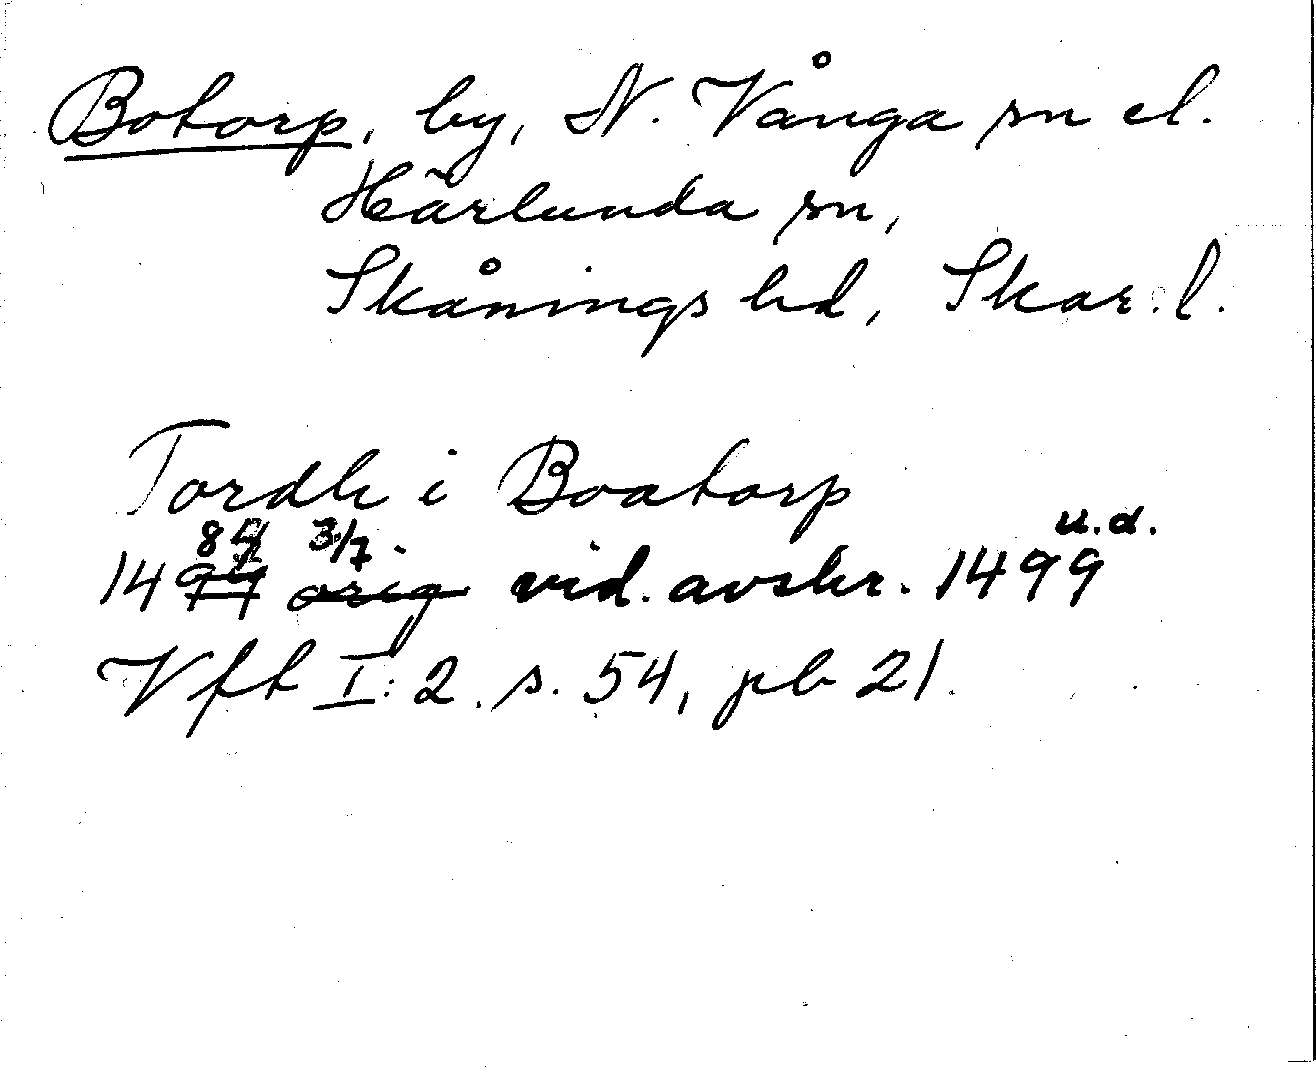 Botorp, by, N. Vånga sn el.
Härlunda sn,
Skånings hd, Skar. l.
Tordh i Boatorp
3/7. u.d.
1499 orig vid. avskr. 1499
Vft I:2. s. 54, pb 21.